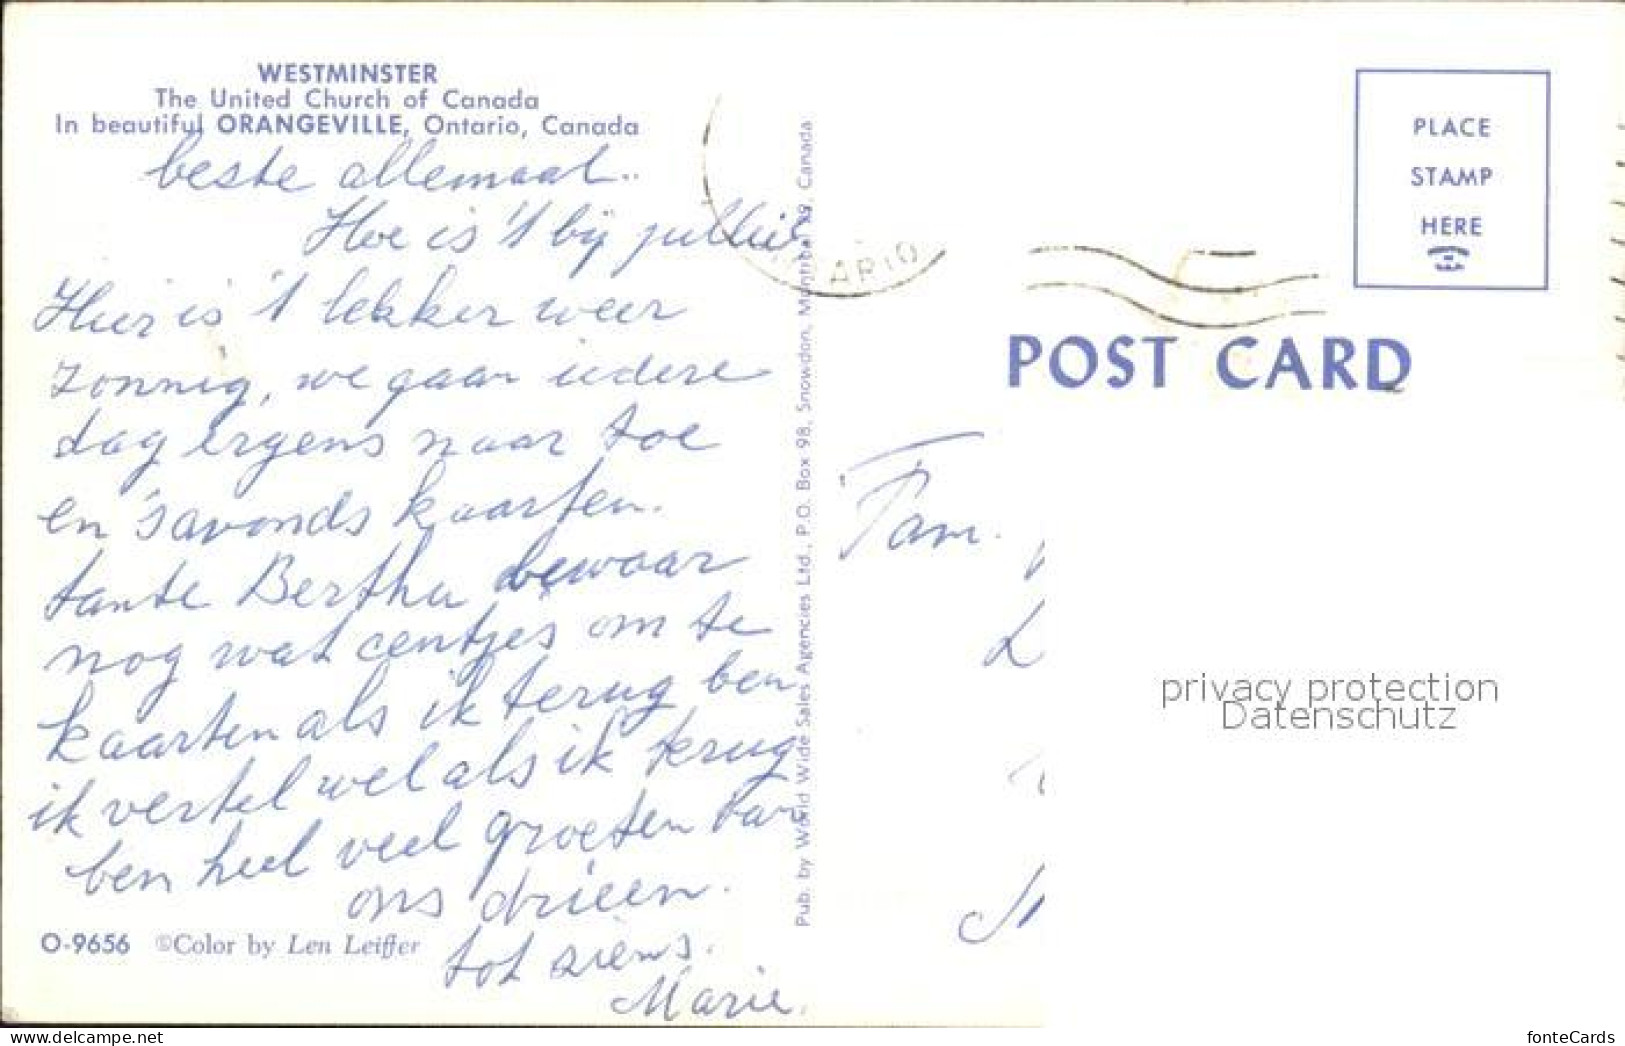 WESTMINSTER
The United Church of Canada
In beautiful ORANGEVILLE, Ontario, Canada
beste allemaal..
Hoe is 't bij jullie,
Hier is 't lekker weer
zonnig, we gaan iedere
dag ergens naar toe
en 's'avonds kaarten.
tante Bertha bewaar
nog wat centjes om te
kaarten als ik terug ben
ik vertel wel als ik terug
ben heel veel groeten van
ons drieën.
tot ziens.
Marie.
O-9656 ©Color by Len Leiffer
Pub. by World Wide Sales Agencies Ltd., P.O. Box 98, Snowdon, Montreal 29, Canada
PLACE
STAMP
HERE
POST CARD
Fam.
privacy protection
Datenschutz
fonteCards